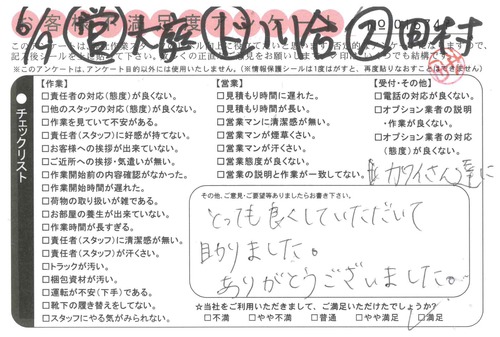 6/9 営 大庭 ト 川合 ス 田村
お客様満足度アンケート
記載後シールを
※このアンケートは、アンケート目的以外には使用いたしません。（※情報保護シールは1度はがすと、再度貼りなおすことは出来ません）
チェックリスト
【作業】
□責任者の対応（態度）が良くない。
□他のスタッフの対応（態度）が良くない。
□作業を見ていて不安がある。
□責任者（スタッフ）に好感が持てない。
□お客様への挨拶が出来ていない。
□ご近所への挨拶・気遣いが無い。
□作業開始前の内容確認がなかった。
□作業開始時間が遅れた。
□荷物の取り扱いが雑である。
□お部屋の養生が出来ていない。
□作業時間が長すぎる。
□責任者（スタッフ）に清潔感が無い。
□責任者（スタッフ）が汗くさい。
□トラックが汚い。
□梱包資材が汚い。
□運転が不安（下手）である。
□靴下の履き替えをしてない。
□スタッフにやる気がみられない。
【営業】
□見積もり時間に遅れた。
□見積もり時間が長い。
□営業マンに清潔感が無い。
□営業マンが煙草くさい。
□営業マンが汗くさい。
□営業態度が良くない。
□営業の説明と作業が一致してない。
【受付・その他】
□電話の対応が良くない。
□オプション業者の説明
・作業が良くない。
□オプション業者の対応
（態度）が良くない。
カワイさん達に
その他、ご意見・ご要望等ありましたらお書き下さい。
とっても良くしていただいて
助りました。
ありがとうございました。
☆当社をご利用いただきまして、ご満足いただけたでしょうか？
□不満 □やや不満 □普通 □やや満足 □満足